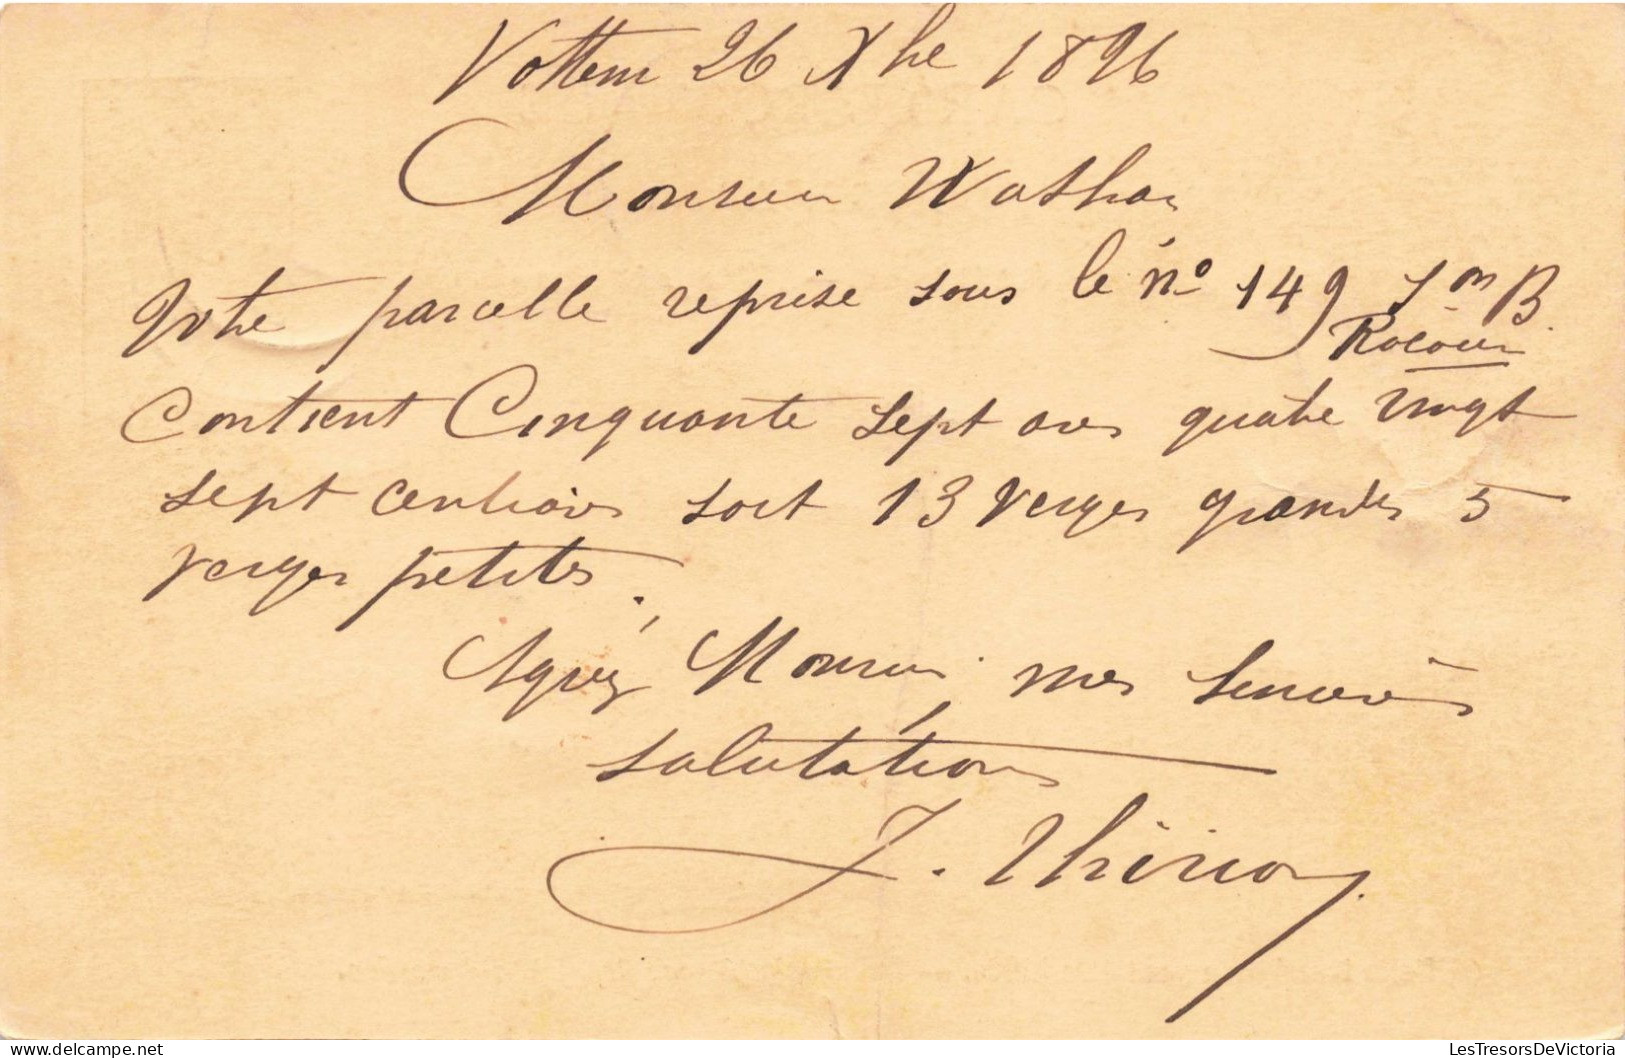 Vottem 26 Xbre 1896
Monsieur Wathar
Votre parcelle reprise sous le n° 149 Son B
Rocour
Contient Cinquante sept ares quatre vingt
sept centiares soit 13 verges grandes 5
verges petites.
Agréez, Monsieur, mes sincères
salutations
J. Thirion
LesTresorsDeVictoria